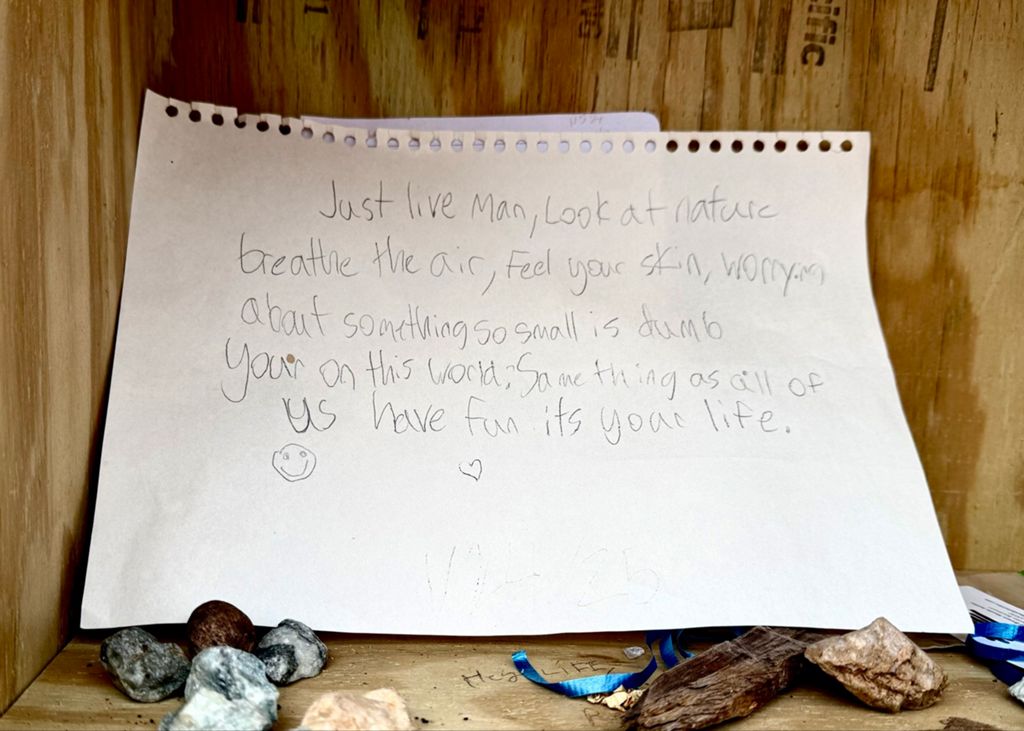 ific
Just live Man, Look at nature
breathe the air, Feel your skin, worrying
about something so small is dumb
Your on this world. Same thing as all of
us have fun its your life.
Hey LIFE